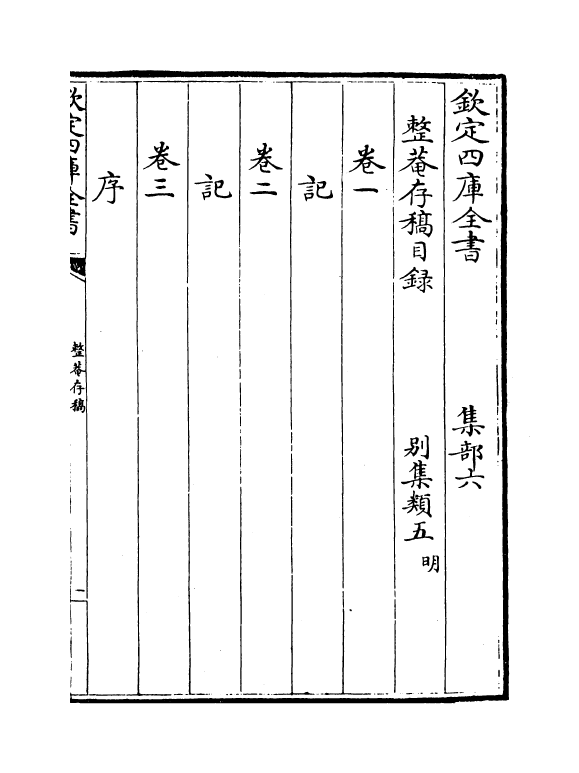 欽定四庫全書 集部六
整菴存稿目録 别集類五明
卷一
記
卷二
記
卷三
序
欽定四庫全書
整菴存稿
一